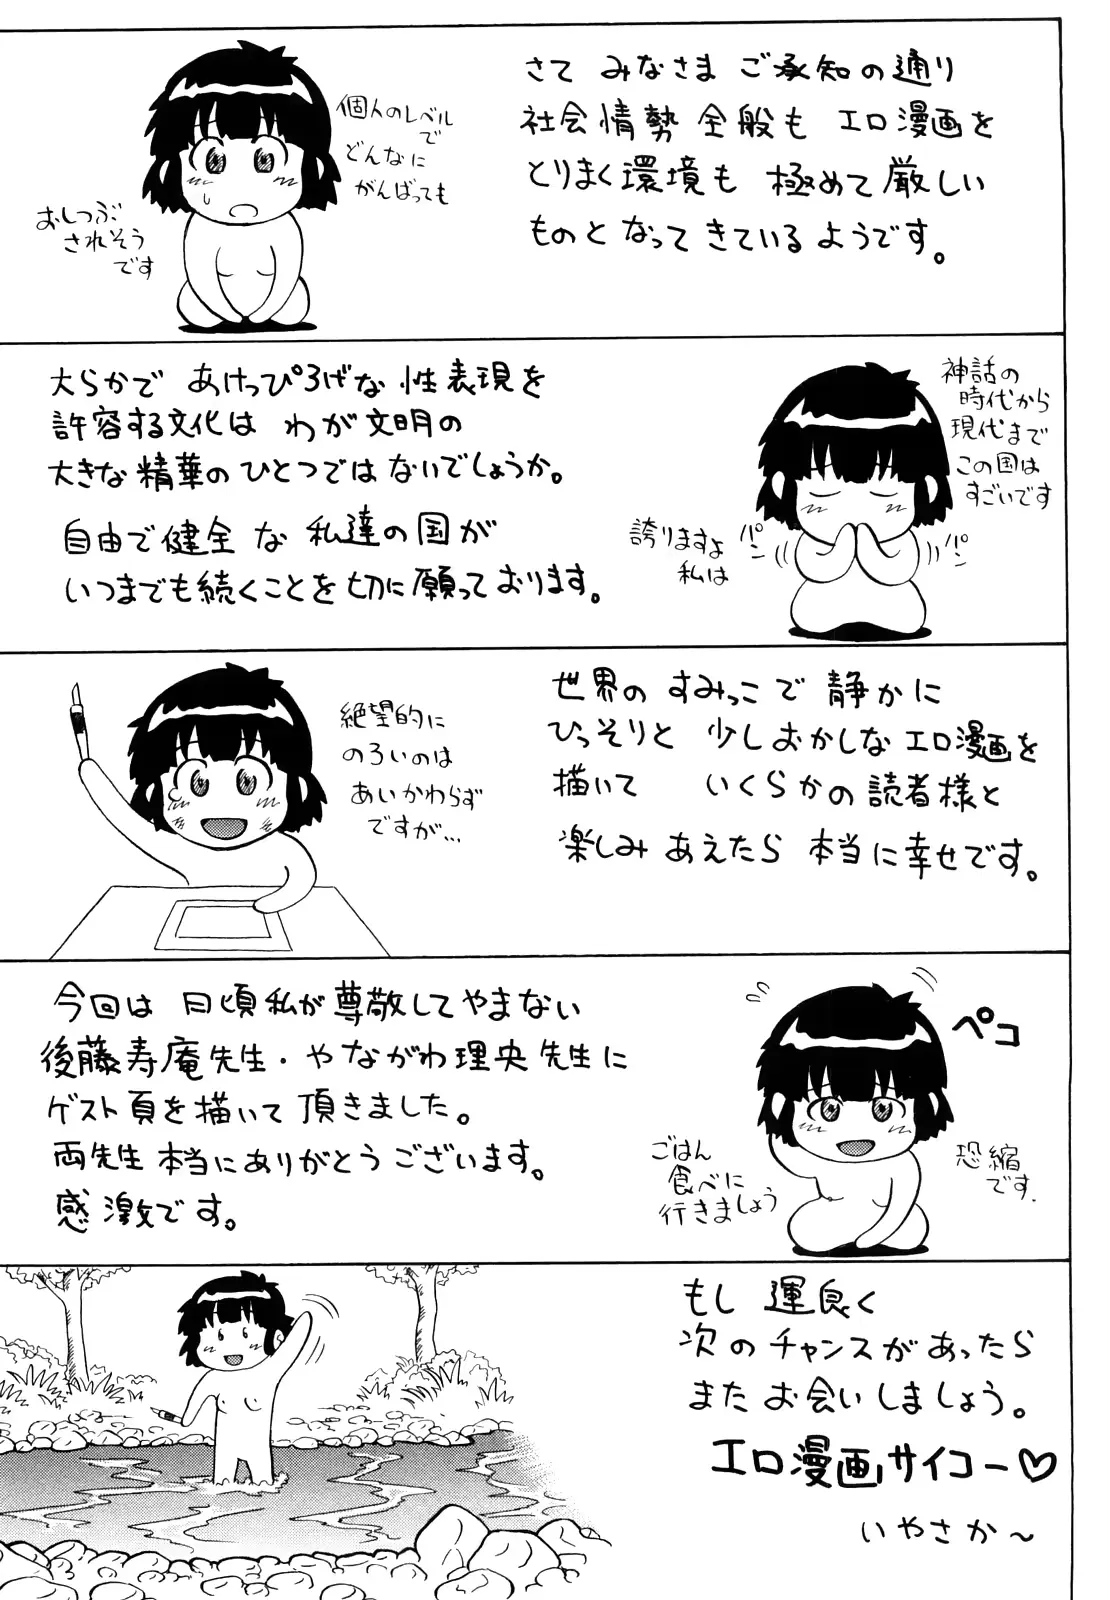 さて みなさま ご承知の通り
社会情勢 全般も エロ漫画を
とりまく環境も 極めて厳しい
ものと なって きているようです。
個人のレベル
で
どんなに
がんばっても
おしつぶ
されそう
です
大らかで あけっぴろげな 性表現を
許容する文化は わが文明の
大きな精華のひとつではないでしょうか。
自由で健全な 私達の国が
いつまでも続くことを切に願っております。
神話の
時代から
現代まで
この国は
すごいです
誇りますよ
私は
パン
パン
世界の すみっこで 静かに
ひっそりと 少しおかしなエロ漫画を
描いて いくらかの読者様と
楽しみあえたら 本当に幸せです。
絶望的に
のろいのは
あいかわらず
ですが…
今回は 日頃私が尊敬してやまない
後藤寿庵先生・やながわ理央先生に
ゲスト頁を描いて頂きました。
両先生本当にありがとうございます。
感激です。
ペコ
ごはん
食べに
行きましょう
恐縮
です.
もし 運良く
次のチャンスがあったら
またお会いしましょう。
エロ漫画サイコー♡
いやさか〜